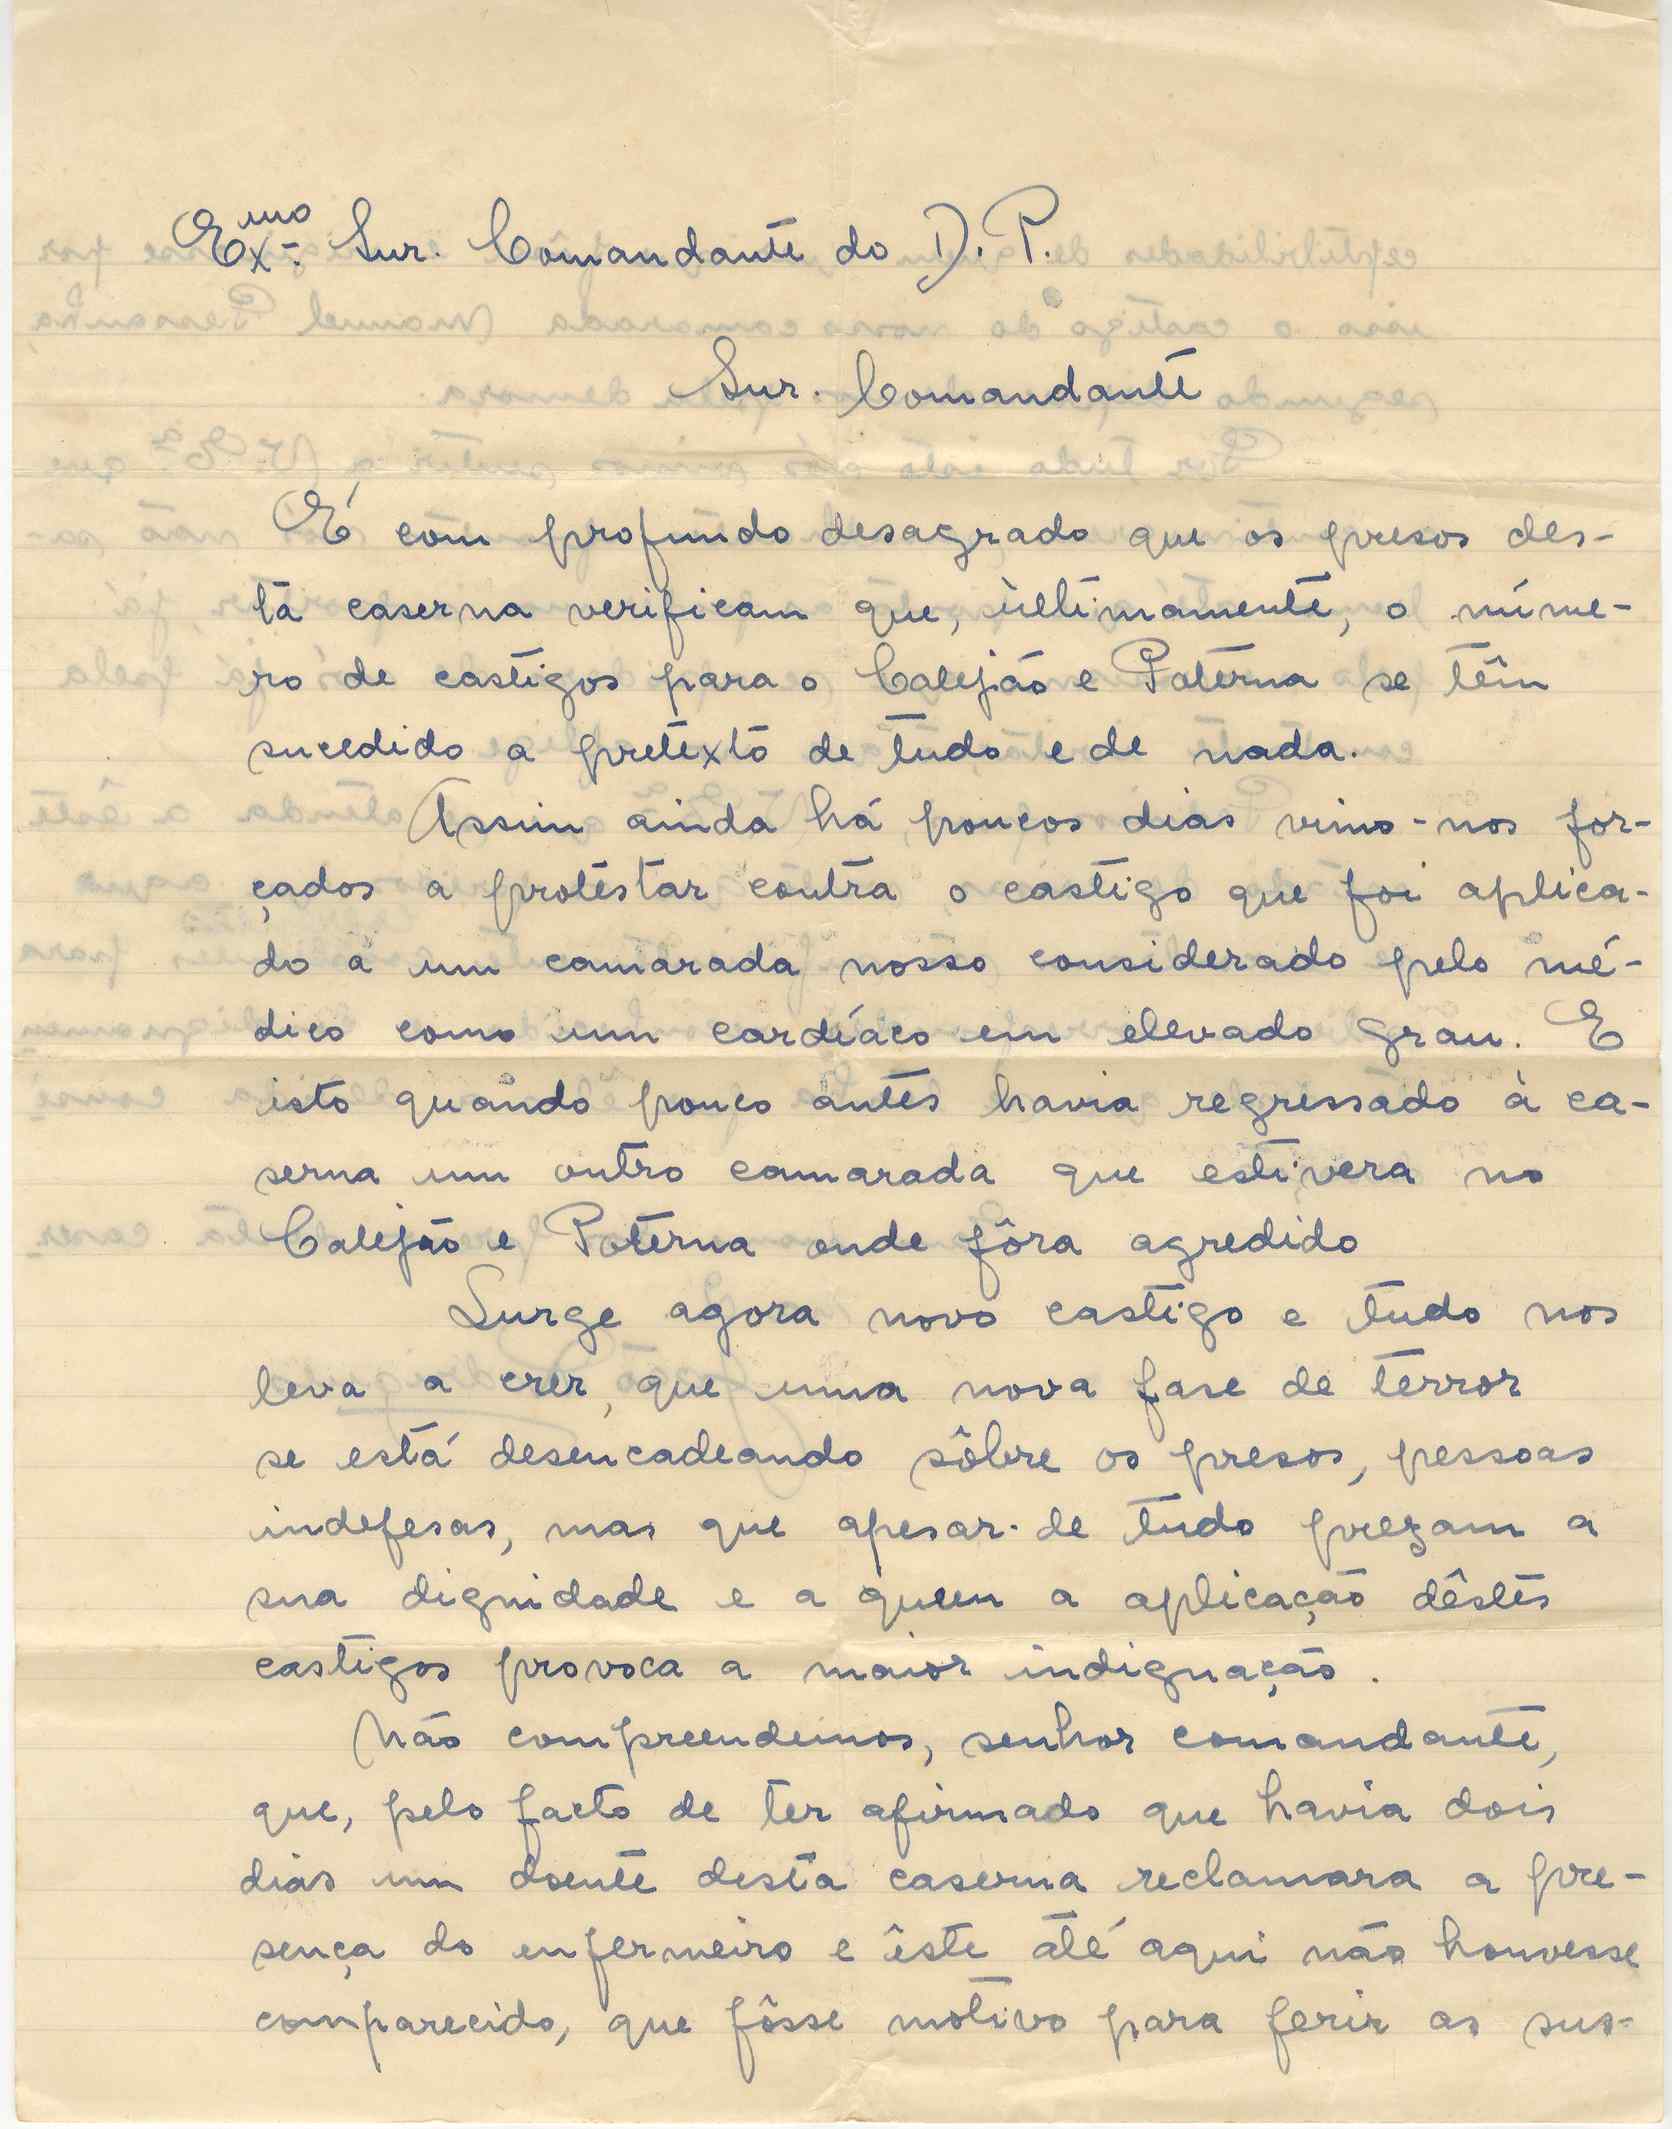 Exmo. Snr. Comandante do D. P.
Snr. Comandante
É com profundo desagrado que os presos des-
ta caserna verificam que, ùltimamente, o núme-
ro de castigos para o Calejão e Poterna se têm
sucedido a pretexto de tudo e de nada.
Assim ainda há poucos dias vimo-nos for-
çados a protestar contra o castigo que foi aplica-
do a um camarada nosso considerado pelo mé-
dico como um cardíaco em elevado grau. E
isto quando pouco antes havia regressado à ca-
serna um outro camarada que estivera no
Calejão e Poterna onde fôra agredido
Surge agora novo castigo e tudo nos
leva a crer, que uma nova fase de terror
se está desencadeando sôbre os presos, pessoas
indefesas, mas que apesar de tudo prezam a
sua dignidade e a quem a aplicação dêstes
castigos provoca a maior indignação.
Não compreendemos, senhor comandante,
que, pelo facto de ter afirmado que havia dois
dias um doente desta caserna reclamara a pre-
sença do enfermeiro e êste até aqui não houvesse
comparecido, que fôsse motivo para ferir as sus-